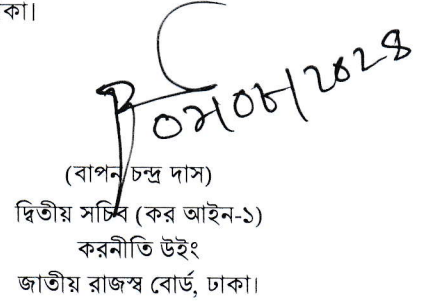 কা।
(বাপন চন্দ্র দাস)
দ্বিতীয় সচিব (কর আইন-১)
করনীতি উইং
জাতীয় রাজস্ব বোর্ড, ঢাকা।